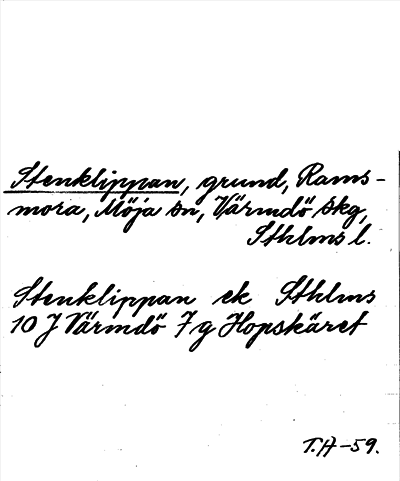 Stenklippan, grund, Rams-
mora, Möja sn, Värmdö skg,
Sthlms l.
Stenklippan ek Sthlms
10 J Värmdö 7 g Hopskäret
T.H-59.